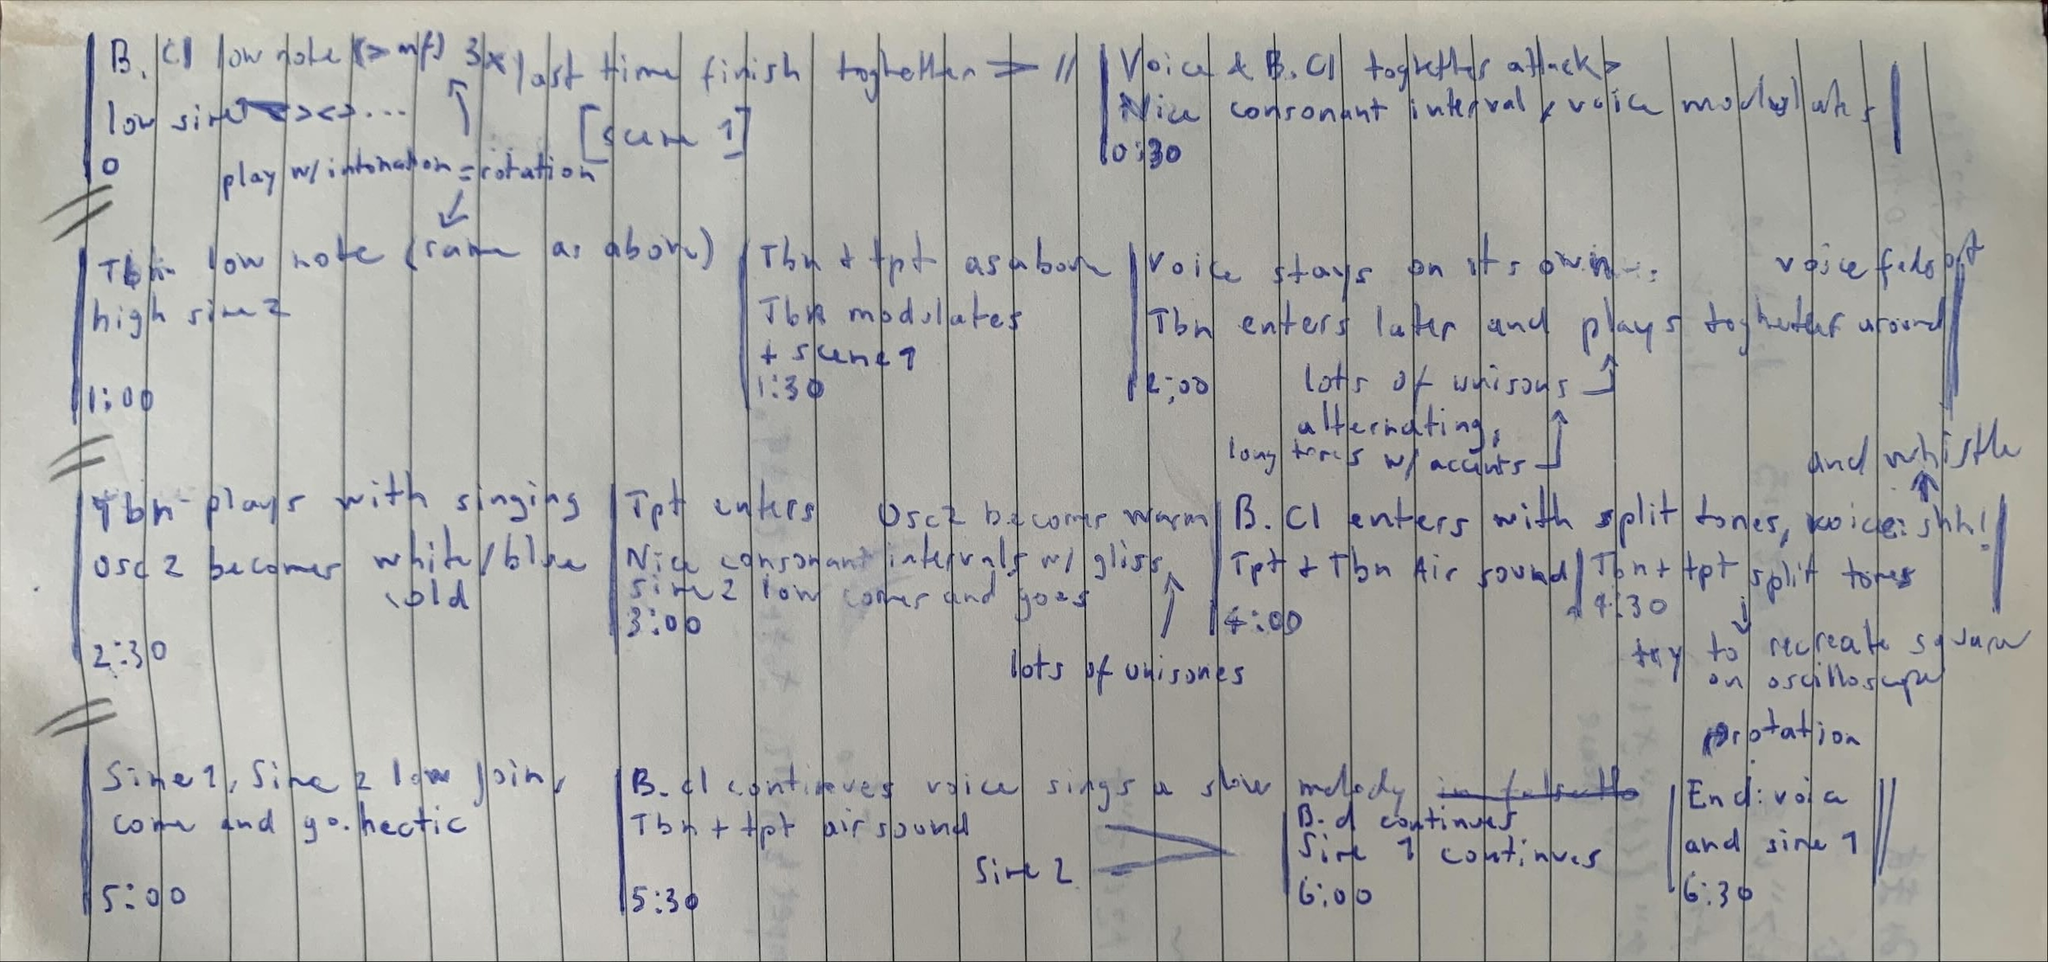 B. Cl low note (> mf) 3x last time finish toghether > //
low sine1 <><>...
[scene 1]
0
play w/ intonation = rotation
Voice & B. Cl together attack >
Nice consonant interval, voice modulates
0:30
Tbn low note (same as above)
high sine 2
1:00
Tbn + tpt as above
Tbn modulates
+ scene 1
1:30
Voice stays on its own... voice fades out
Tbn enters later and plays toghether around
2:00
lots of unisons
alternating,
long tones w/ accents
Tbn plays with singing
Osc 2 becomes white/blue
cold
2:30
Tpt enters Osc2 becomes warm
Nice consonant intervals w/ gliss,
Sine 2 low comes and goes
3:00
lots of unisones
and whistle
B. Cl enters with split tones, voice: shh!
Tpt + Tbn Air sound
4:00
Tbn + tpt split tones
4:30
try to recreate square
on oscilloscope
rotation
Sine 1, Sine 2 low join,
come and go. hectic
5:00
B. cl continues voice sings a slow melody in falsetto
Tbn + tpt air sound
Sine 2 >
5:30
B. cl continues
Sine 1 continues
6:00
End: voice
and sine 1
6:30